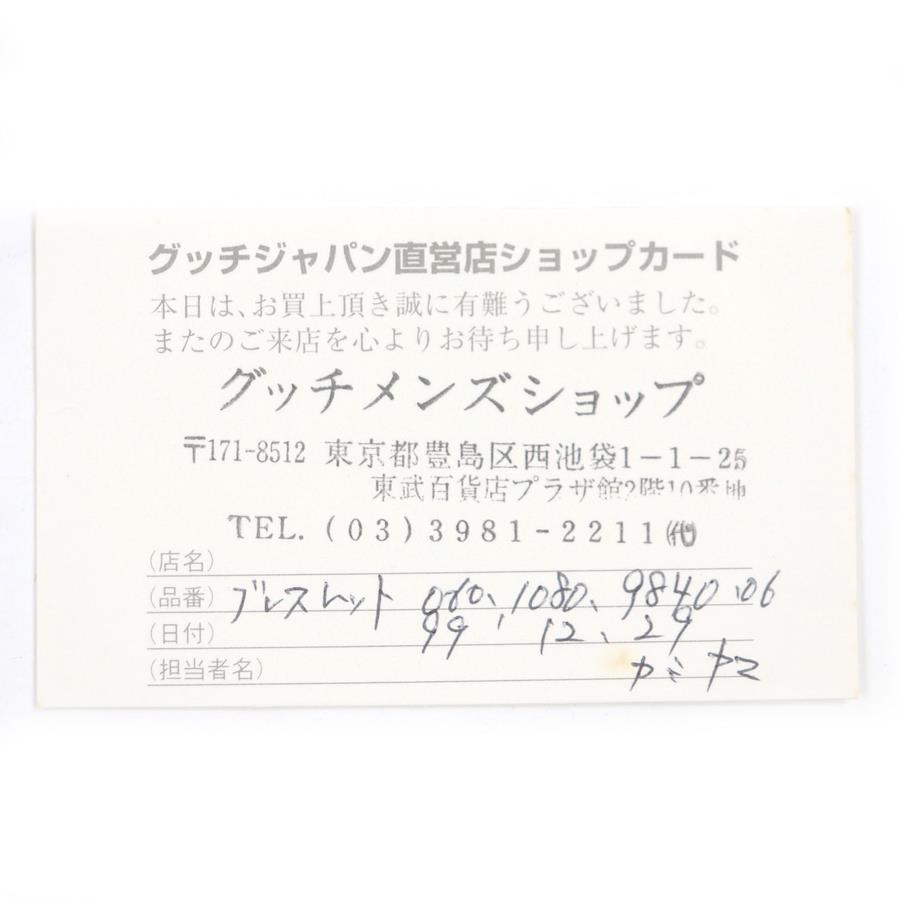 グッチジャパン直営店ショップカード
本日は、お買上頂き誠に有難うございました。
またのご来店を心よりお待ち申し上げます。
グッチメンズショップ
〒171-8512 東京都豊島区西池袋1-1-25
東武百貨店プラザ館2階10番地
TEL. (03) 3981-2211㈹
(店名)
(品番) ブレスレット 060、1080、9840.06
(日付) 99、12、29
(担当者名) カミヤマ